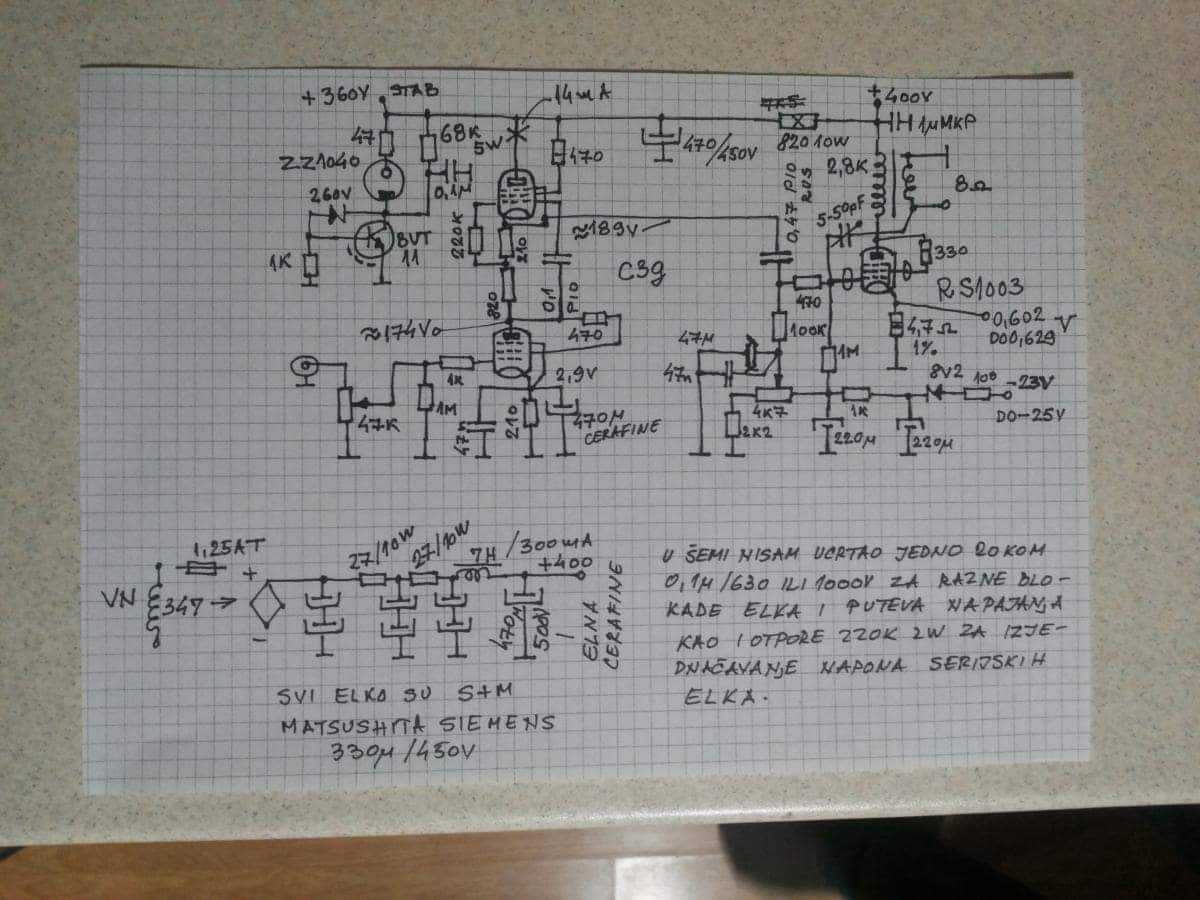 +360V STAB
14mA
7K5
+
400V
47
68K
5W
470
470/450V
820 10W
1µMKP
ZZ1040
0,1µ
0,47 PIO
RUS
2,8K
8Ω
260V
5-50pF
BUT
11
220K
210
≈189V
1K
C3g
330
820
0,1
PIO
470
RS1003
≈174V
470
100K
4,7Ω
1%
0,602 V
DO0,629
47µ
1K
2,9V
47n
1M
8V2
100
-23V
47K
1M
47n
210
470µ
CERAFINE
4K7
1K
DO-25V
2K2
220µ
220µ
1,25AT
27/10W
27/10W
7H/300mA
+400
VN
347
+
-
470µ
500V
ELNA
CERAFINE
SVI ELKO SU S+M
MATSUSHITA SIEMENS
330µ/450V
U ŠEMI NISAM UCRTAO JEDNO 20KOM
0,1µ/630 ILI 1000V ZA RAZNE BLO-
KADE ELKA I PUTEVA NAPAJANJA
KAO I OTPORE 220K 2W ZA IZJE-
DNAČAVANJE NAPONA SERIJSKIH
ELKA.